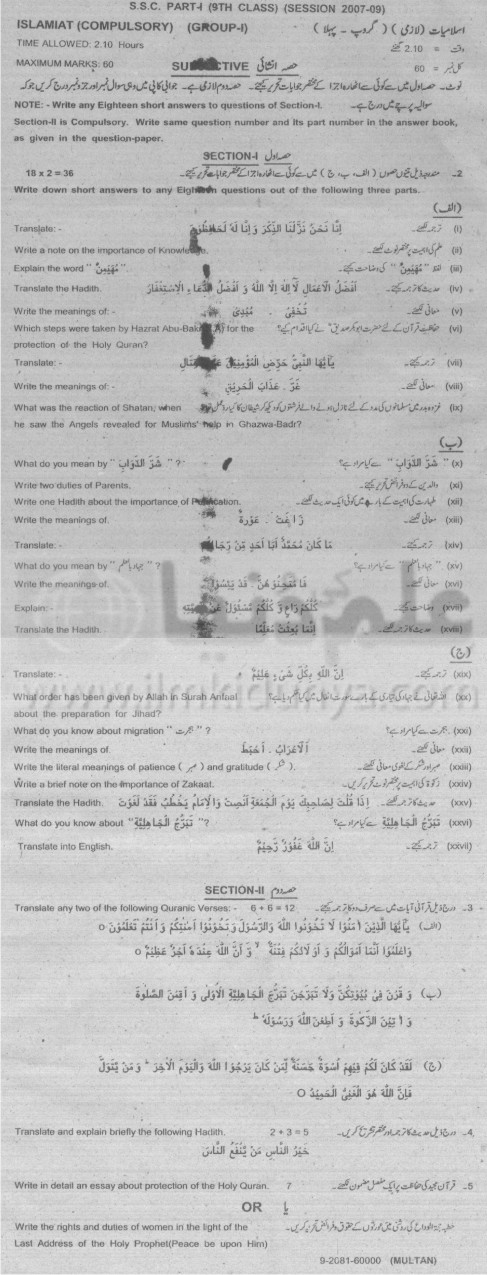 S.S.C. PART-I (9TH CLASS) (SESSION 2007-09)
ISLAMIAT (COMPULSORY) (GROUP-I) اسلامیات (لازمی) (گروپ - پہلا)
TIME ALLOWED: 2.10 Hours وقت = 2.10 گھنٹے
MAXIMUM MARKS: 60 SUBJECTIVE حصہ انشائی کل نمبر = 60
نوٹ۔ حصہ اول میں سے کوئی سے اٹھارہ اجزا کے مختصر جوابات تحریر کیجئے۔ حصہ دوم لازمی ہے۔ جوابی کاپی میں وہی سوال نمبر اور جزو نمبر درج کریں جو کہ
NOTE: - Write any Eighteen short answers to questions of Section-I. سوالیہ پرچے میں درج ہے۔
Section-II is Compulsory. Write same question number and its part number in the answer book,
as given in the question-paper.
SECTION-I حصہ اول
18 x 2 = 36 2۔ مندرجہ ذیل تینوں حصوں (الف، ب، ج) میں سے کوئی سے اٹھارہ اجزا کے مختصر جوابات تحریر کیجئے۔
Write down short answers to any Eighteen questions out of the following three parts.
(الف)
Translate: - اِنَّا نَحْنُ نَزَّلْنَا الذِّكْرَ وَ اِنَّا لَهٗ لَحٰفِظُوْنَ ترجمہ لکھئے۔ (i)
Write a note on the importance of Knowledge. علم کی اہمیت پر مختصر نوٹ لکھئے۔ (ii)
Explain the word "مُهَيْمِنٌ" لفظ "مُهَيْمِنٌ" کی وضاحت کیجئے۔ (iii)
Translate the Hadith. اَفْضَلُ الْاَعْمَالِ لَآ اِلٰهَ اِلَّا اللّٰهُ وَ اَفْضَلُ الدُّعَآءِ الْاِسْتِغْفَارُ حدیث کا ترجمہ کیجئے۔ (iv)
Write the meanings of: - تُخْفِیْ ۔ مُبْدِیْ معانی لکھئے۔ (v)
Which steps were taken by Hazrat Abu-Bakr for the حفاظت قرآن کے لئے حضرت ابوبکر صدیق نے کیا اقدام کیے؟ (vi)
protection of the Holy Quran?
Translate: - يٰٓاَيُّهَا النَّبِىُّ حَرِّضِ الْمُؤْمِنِيْنَ عَلَى الْقِتَالِ ترجمہ کیجئے۔ (vii)
Write the meanings of: - غَرَّ ۔ عَذَابَ الْحَرِيْقِ معانی لکھئے۔ (viii)
What was the reaction of Shatan, when غزوہ بدر میں مسلمانوں کی مدد کے لئے نازل ہونے والے فرشتوں کو دیکھ کر شیطان کا کیا ردعمل (ix)
he saw the Angels revealed for Muslims' help in Ghazwa-Badr?
(ب)
What do you mean by "شَرَّ الدَّوَآبِّ"? "شَرَّ الدَّوَآبِّ" سے کیا مراد ہے؟ (x)
Write two duties of Parents. والدین کے دو فرائض تحریر کیجئے۔ (xi)
Write one Hadith about the importance of Purification. طہارت کی اہمیت کے بارے میں کوئی ایک حدیث لکھئے۔ (xii)
Write the meanings of. زَاغَتْ ۔ عَوْرَةٌ معانی لکھئے۔ (xiii)
Translate: - مَا كَانَ مُحَمَّدٌ اَبَآ اَحَدٍ مِّنْ رِّجَالِكُمْ ترجمہ کیجئے۔ (xiv)
What do you mean by "جہاد بالعلم" "جہاد بالعلم" سے کیا مراد ہے؟ (xv)
Write the meanings of. قَدْ يَئِسُوْا معانی لکھئے۔ (xvi)
Explain: - كُلُّكُمْ رَاعٍ وَ كُلُّكُمْ مَسْئُوْلٌ عَنْ رَعِيَّتِهٖ وضاحت کیجئے۔ (xvii)
Translate the Hadith. اِنَّمَا بُعِثْتُ مُعَلِّمًا حدیث کا ترجمہ لکھئے۔ (xviii)
علم کی دنیا
www.ilmkidunya.com
(ج)
Translate: - اِنَّ اللّٰهَ بِكُلِّ شَیْءٍ عَلِيْمٌ ترجمہ کیجئے۔ (xix)
What order has been given by Allah in Surah Anfaal اللہ تعالیٰ نے جہاد کی تیاری کے بارے سورت انفال میں کیا حکم دیا ہے؟ (xx)
about the preparation for Jihad?
What do you know about migration "ہجرت"? ہجرت سے کیا مراد ہے؟ (xxi)
Write the meanings of. اَلْاَعْرَابُ ۔ اَحْبَطَ معانی لکھئے۔ (xxii)
Write the literal meanings of patience (صبر) and gratitude (شکر). صبر اور شکر کے لغوی معانی لکھئے۔ (xxiii)
Write a brief note on the importance of Zakaat. زکوٰۃ کی اہمیت پر مختصر نوٹ تحریر کریں۔ (xxiv)
Translate the Hadith. اِذَا قُلْتَ لِصَاحِبِكَ يَوْمَ الْجُمُعَةِ اَنْصِتْ وَالْاِمَامُ يَخْطُبُ فَقَدْ لَغَوْتَ حدیث کا ترجمہ لکھئے۔ (xxv)
What do you know about "تَبَرُّجَ الْجَاهِلِيَّةِ"? تَبَرُّجَ الْجَاهِلِيَّةِ سے کیا مراد ہے؟ (xxvi)
Translate into English. اِنَّ اللّٰهَ غَفُوْرٌ رَّحِيْمٌ ترجمہ کیجئے۔ (xxvii)
SECTION-II حصہ دوم
Translate any two of the following Quranic Verses: - 6 + 6 = 12 3۔ درج ذیل قرآنی آیات میں سے صرف دو کا ترجمہ کیجئے۔
(الف) يٰٓاَيُّهَا الَّذِيْنَ اٰمَنُوْا لَا تَخُوْنُوا اللّٰهَ وَالرَّسُوْلَ وَ تَخُوْنُوْٓا اَمٰنٰتِكُمْ وَ اَنْتُمْ تَعْلَمُوْنَ O
وَاعْلَمُوْٓا اَنَّمَآ اَمْوَالُكُمْ وَ اَوْلَادُكُمْ فِتْنَةٌ ۙ وَ اَنَّ اللّٰهَ عِنْدَهٗٓ اَجْرٌ عَظِيْمٌ O
(ب) وَ قَرْنَ فِیْ بُيُوْتِكُنَّ وَلَا تَبَرَّجْنَ تَبَرُّجَ الْجَاهِلِيَّةِ الْاُوْلٰى وَ اَقِمْنَ الصَّلٰوةَ
وَ اٰتِيْنَ الزَّكٰوةَ وَ اَطِعْنَ اللّٰهَ وَرَسُوْلَهٗ ؕ
(ج) لَقَدْ كَانَ لَكُمْ فِيْهِمْ اُسْوَةٌ حَسَنَةٌ لِّمَنْ كَانَ يَرْجُوا اللّٰهَ وَالْيَوْمَ الْاٰخِرَ ؕ وَ مَنْ يَّتَوَلَّ
فَاِنَّ اللّٰهَ هُوَ الْغَنِیُّ الْحَمِيْدُ O
Translate and explain briefly the following Hadith. 2 + 3 = 5 4۔ درج ذیل حدیث کا ترجمہ اور مختصر تشریح کریں۔
خَيْرُ النَّاسِ مَنْ يَّنْفَعُ النَّاسَ
Write in detail an essay about protection of the Holy Quran. 7 5۔ قرآن مجید کی حفاظت پر ایک مفصل مضمون لکھئے۔
OR یا
Write the rights and duties of women in the light of the خطبہ حجۃ الوداع کی روشنی میں عورتوں کے حقوق و فرائض تحریر کریں۔
Last Address of the Holy Prophet(Peace be upon Him)
9-2081-60000 (MULTAN)